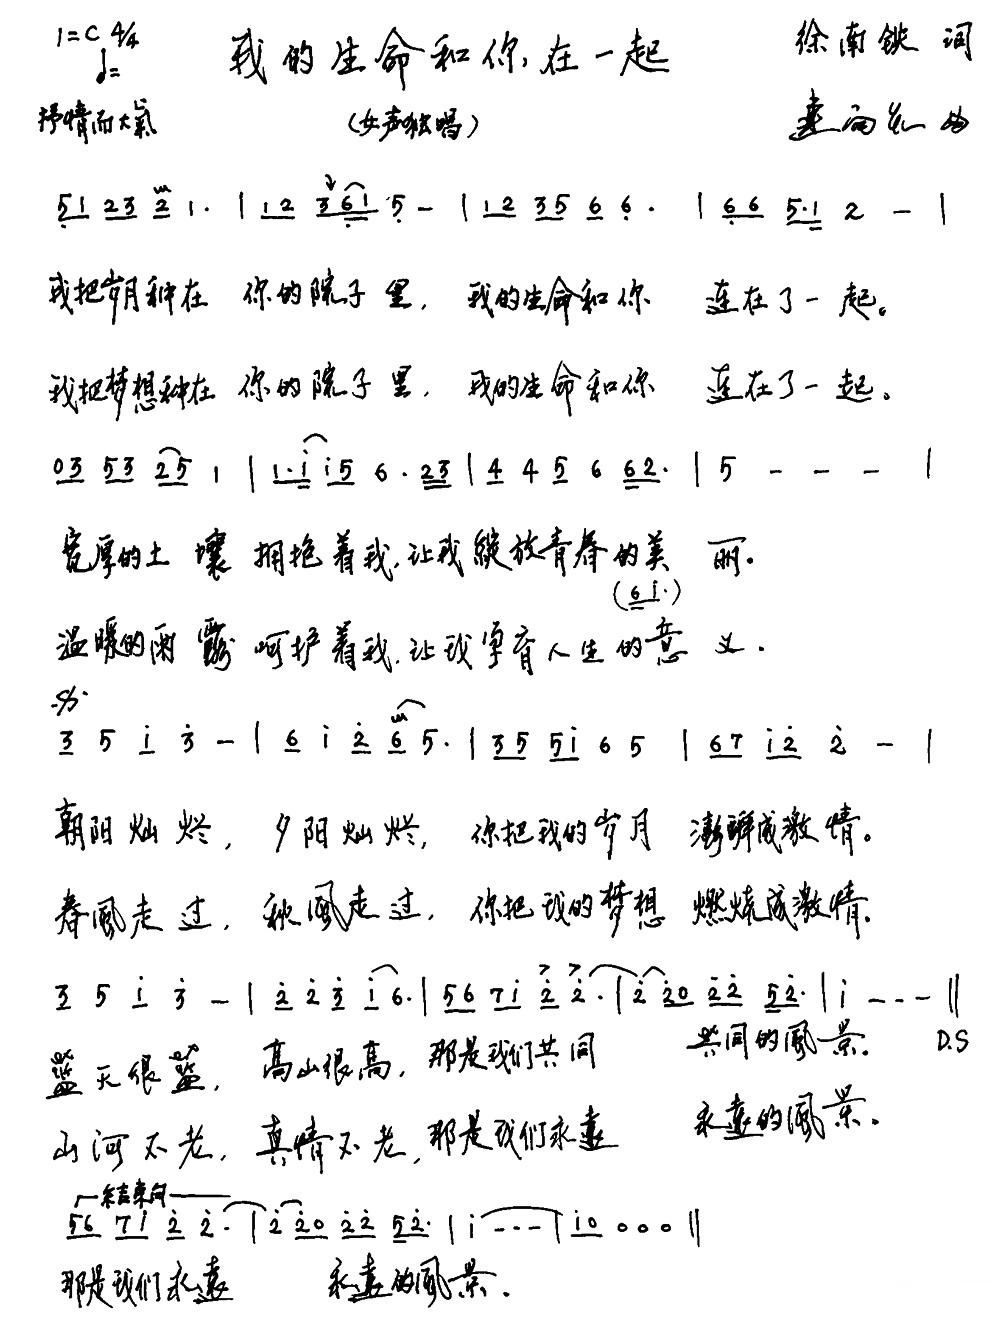 1=C 4/4 我的生命和你在一起 徐南铁 词
♩=
抒情而大氣 (女声独唱) 曲
51 23 2 1· | 12 361 5 - | 12 35 6 6· | 66 5·1 2 - |
我把岁月种在 你的院子里, 我的生命和你 连在了一起。
我把梦想种在 你的院子里, 我的生命和你 连在了一起。
03 53 25 1 | 1·i i5 6·23 | 4 4 5 6 62· | 5 - - - |
宽厚的土壤 拥抱着我,让我綻放青春的美 丽.
(6i·)
温暖的雨露 呵护着我,让我孕育人生的意 义.
3 5 i 3 - | 6 i 2 6 5· | 35 5i 6 5 | 67 i2 2 - |
朝阳灿烂, 夕阳灿烂, 你把我的岁月 澎湃成激情。
春風走过, 秋風走过, 你把我的梦想 燃烧成激情.
3 5 i 3 - | 2 2 3 i 6· | 56 7i 2 2· | 2 20 22 52· | i - - - ‖
蓝天很蓝, 高山很高, 那是我们共同 共同的風景. D.S
山河不老, 真情不老, 那是我们永遠 永遠的風景.
结束句
56 7i 2 2· | 2 20 22 52· | i - - - | i0 0 0 0 ‖
那是我们永遠 永遠的風景.